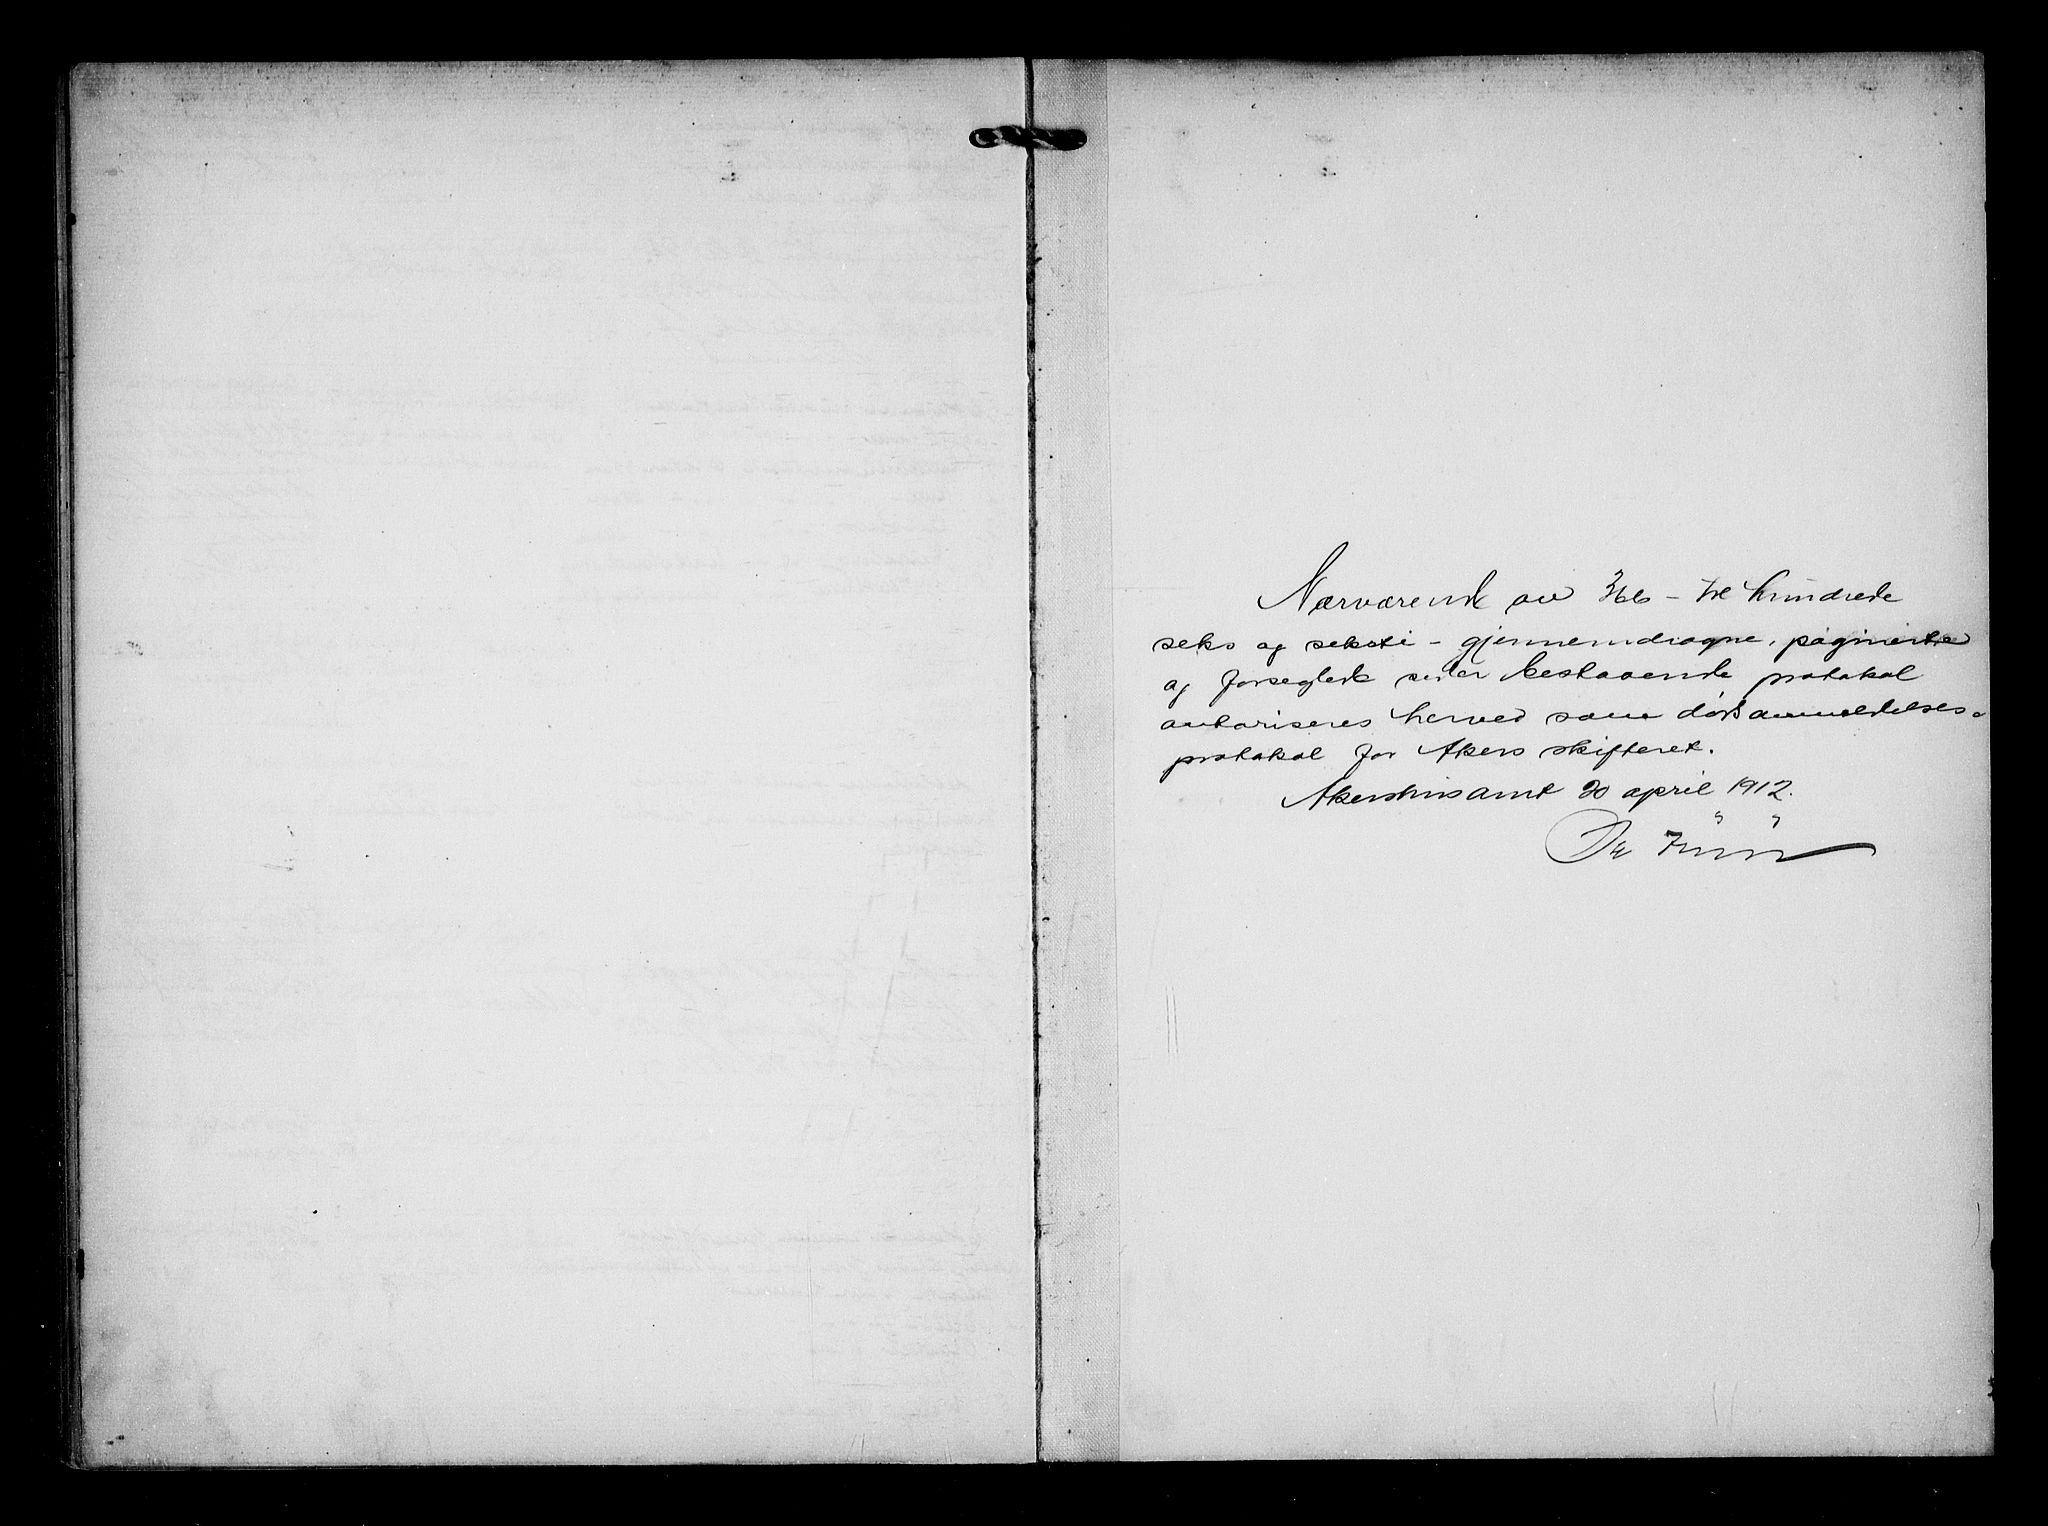 Nærværende av 366 – tre hundrede
seks og seksti – gjennemdragne, paginerte
og forseglede sider bestaaende protokol
autoriseres herved som dødsanmeldelses-
protokol for Akers skifteret.
Akershus amt 20 april 1912.